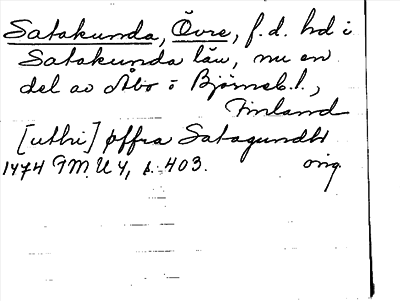 Satakunda, Övre, f.d. hd i
Satakunda län, nu en
del av Åbo o Björneb. l.,
Finland
[uthi] øffra Satagundh
1474 FMU 4, s. 403. orig